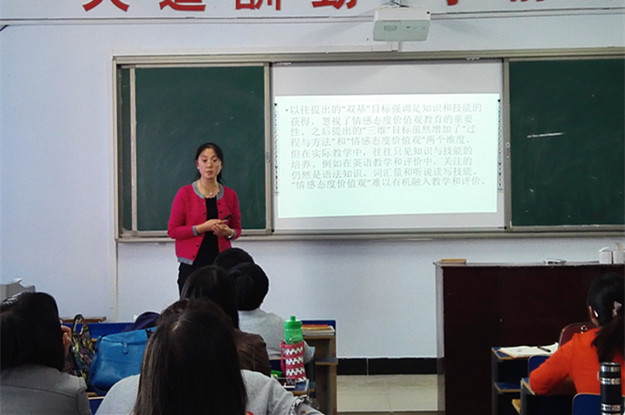 天道酬勤
•以往提出的“双基”目标强调是知识和技能的
获得，忽视了情感态度价值观教育的重要
性。之后提出的“三维”目标虽然增加了“过
程与方法”和“情感态度价值观”两个维度，
但在实际教学中，往往只见知识与技能的
培养。例如在英语教学和评价中，关注的
仍然是语法知识、词汇量和听说读写技能，
“情感态度价值观”难以有机融入教学和评价。